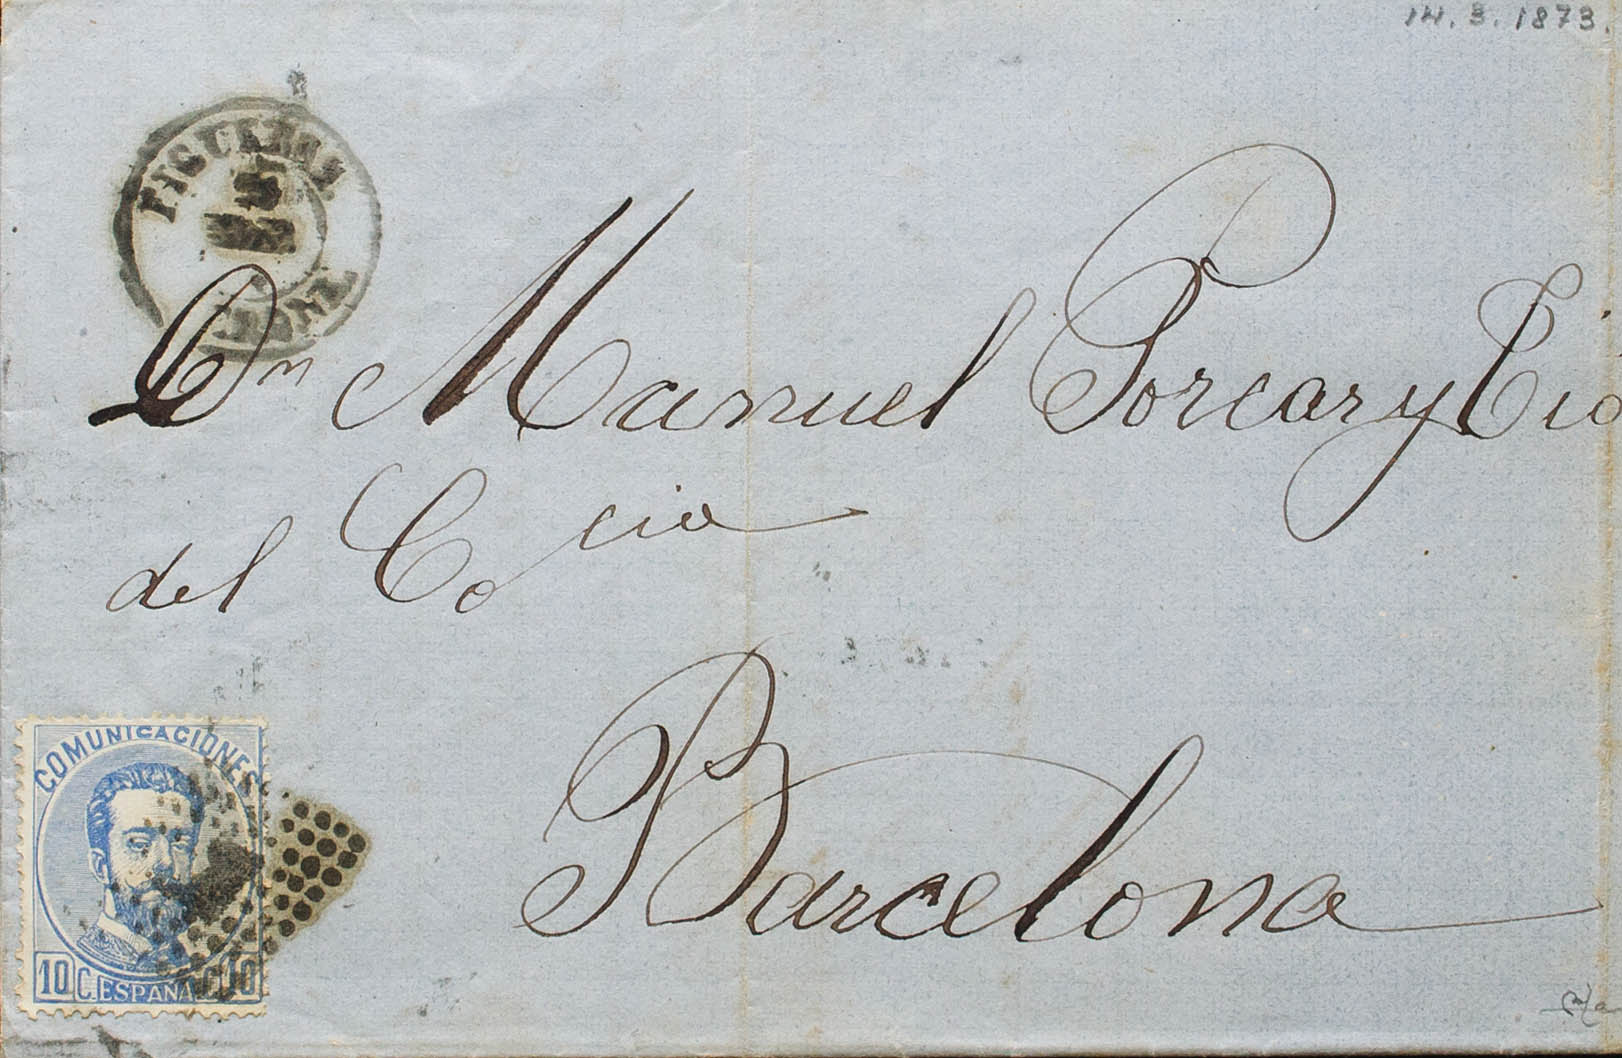 14.3.1873.
Dn Manuel Porcar y Cia
del Cocio
Barcelona
COMUNICACIONES
10 C. ESPAÑA C. 10